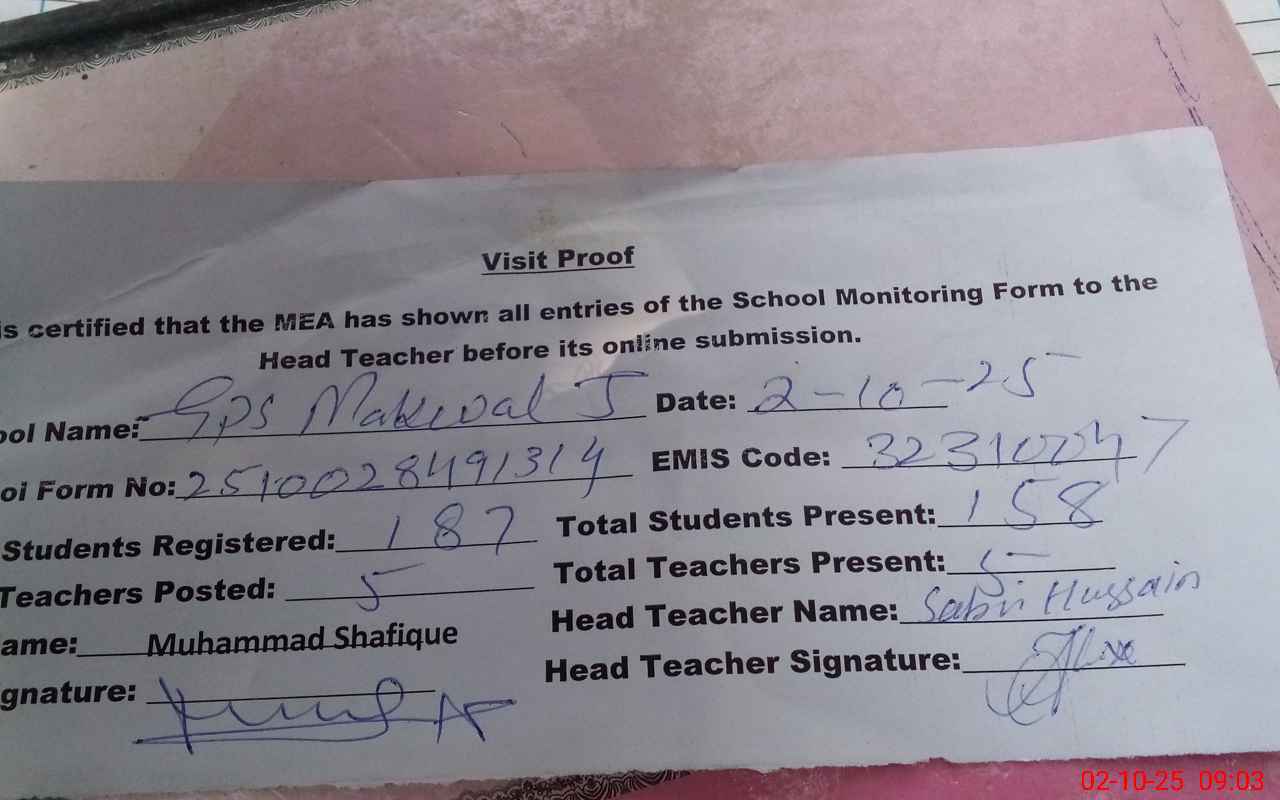 Visit Proof
is certified that the MEA has shown all entries of the School Monitoring Form to the
Head Teacher before its online submission.
ool Name: GPS Makwal J Date: 2-10-25
ol Form No: 2510028491314 EMIS Code: 32310047
Students Registered: 187 Total Students Present: 158
Teachers Posted: 5 Total Teachers Present: 5
ame: Muhammad Shafique Head Teacher Name: Sabir Hussain
gnature: Head Teacher Signature:
02-10-25 09:03